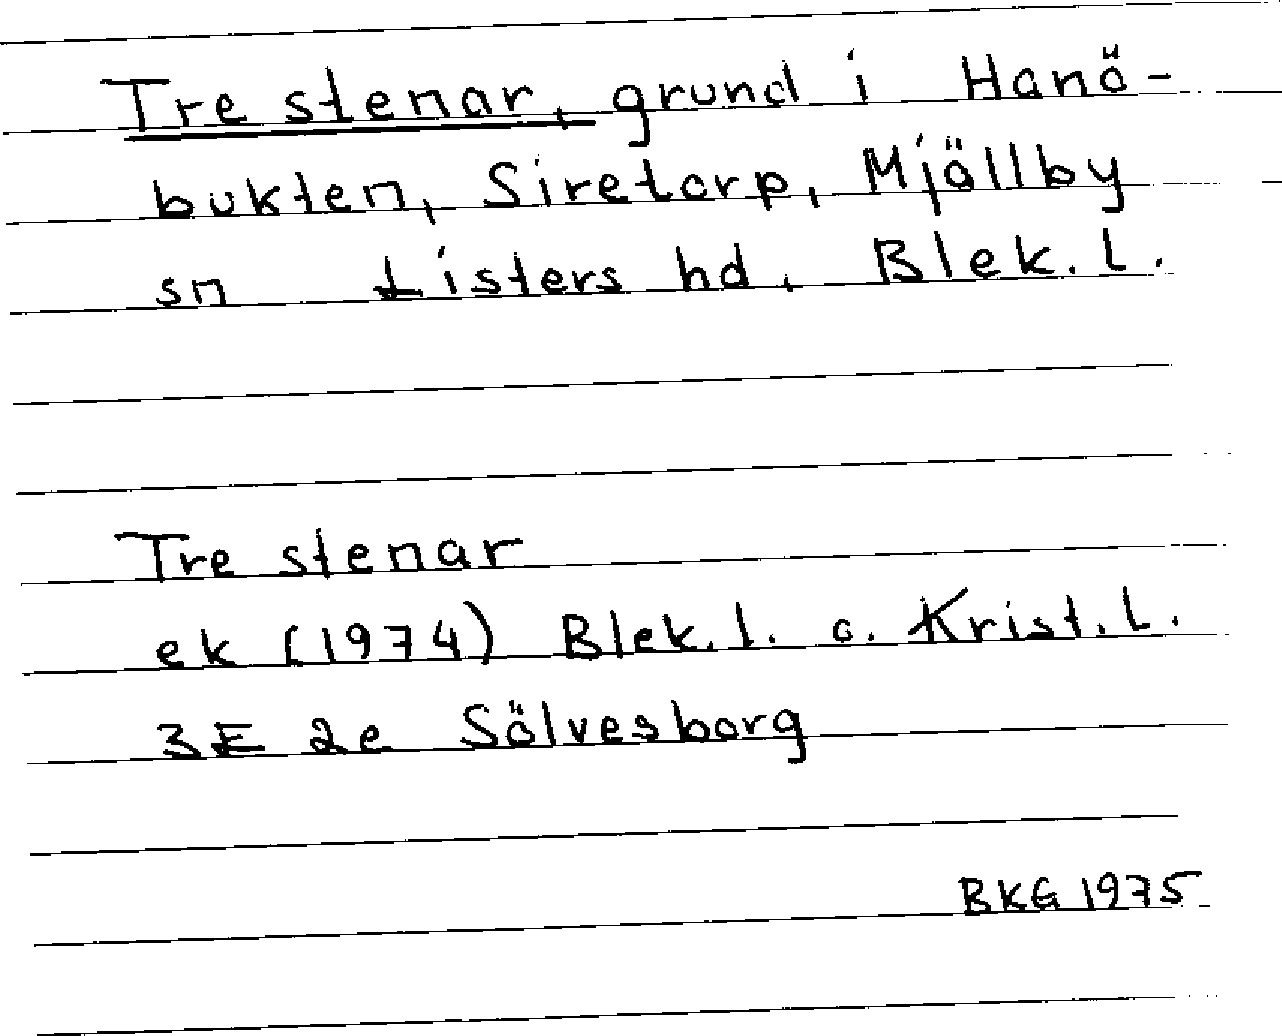 Tre stenar, grund i Hanö-
bukten, Siretorp, Mjällby
sn Listers hd, Blek. l.
Tre stenar
ek (1974) Blek. l. o. Krist. l.
3E 2e Sölvesborg
BKG 1975